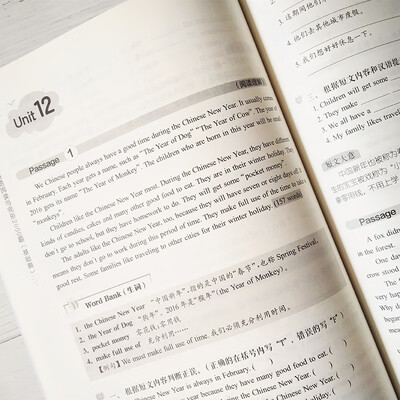 Unit 12
(阅读理解)
Passage 1
We Chinese people always have a good time during the Chinese New Year. It usually comes
in February. Each year gets a name, such as "The Year of Dog" "The Year of Cow" The year of
2016 gets its name "The Year of Monkey". The children who are born in this year will be
"monkeys".
Children like the Chinese New Year most. During the Chinese New Year, they have different
kinds of candies, cakes and many other good food to eat. They are in their winter holiday. They
don't go to school, but they have homework to do. They will get some "pocket money".
The adults like the Chinese New Year, too, because they will have seven or eight days off. It
means they don't go to work during this period of time. They make full use of the time to take a
good rest. Some families like traveling to other cities for their winter holiday. (157 words)
Word Bank (生词)
1. the Chinese New Year "中国新年",指的是中国的"春节",也称 Spring Festival.
2. the Year of Dog "狗年"。2016 年是"猴年"(the Year of Monkey)。
3. pocket money 零花钱;零用钱
4. make full use of 充分利用……
【例句】We must make full use of time. 我们必须充分利用时间。
一、根据短文内容判断正误。(正确的在括号内写"T",错误的写"F")
Chinese New Year is always in February. ( )
year because they have many good food to eat. ( )
the Chinese New Year. ( )
Chinese New Year. ( )
4. 他们去其他城市度假。
5. 我们想好好休息一下。
三、根据短文内容和汉语提
1. Children will get some
2. They make
3. We all have a
4. My family likes travel
短文大意
Passage
A fox did
in the forest.
One day
crow stood
The
very high
Why d
began
mea